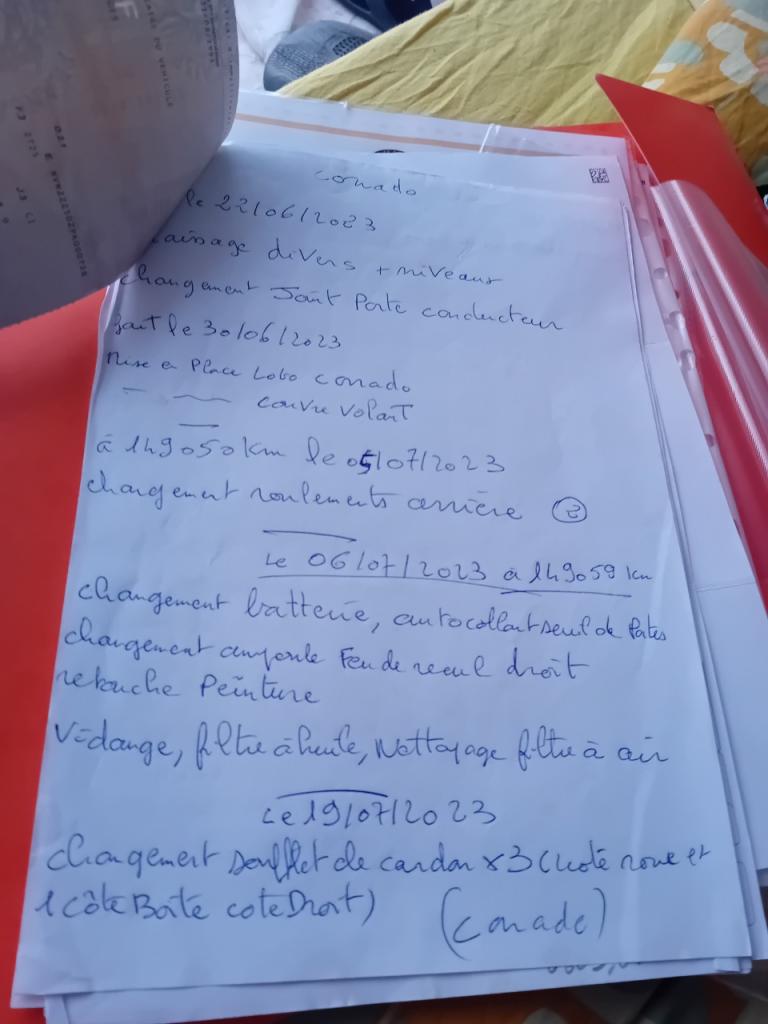 conado
le 22/06/2023
divers + niveaux
changement Joint Porte conducteur
fait le 30/06/2023
Mise en Place Lobo conado
couvre volant
à 149050 km le 05/07/2023
changement roulements arrière 2
Le 06/07/2023 à 149059 km
changement batterie, autocollant seuil de Portes
changement ampoule Feu de recul droit
retouche Peinture
Vidange, filtre à huile, Nettoyage filtre à air
Le 19/07/2023
changement soufflet de cardan x3 ( coté roue et
1 côté Boite coté Droit)
(conado)
DU VEHICULE